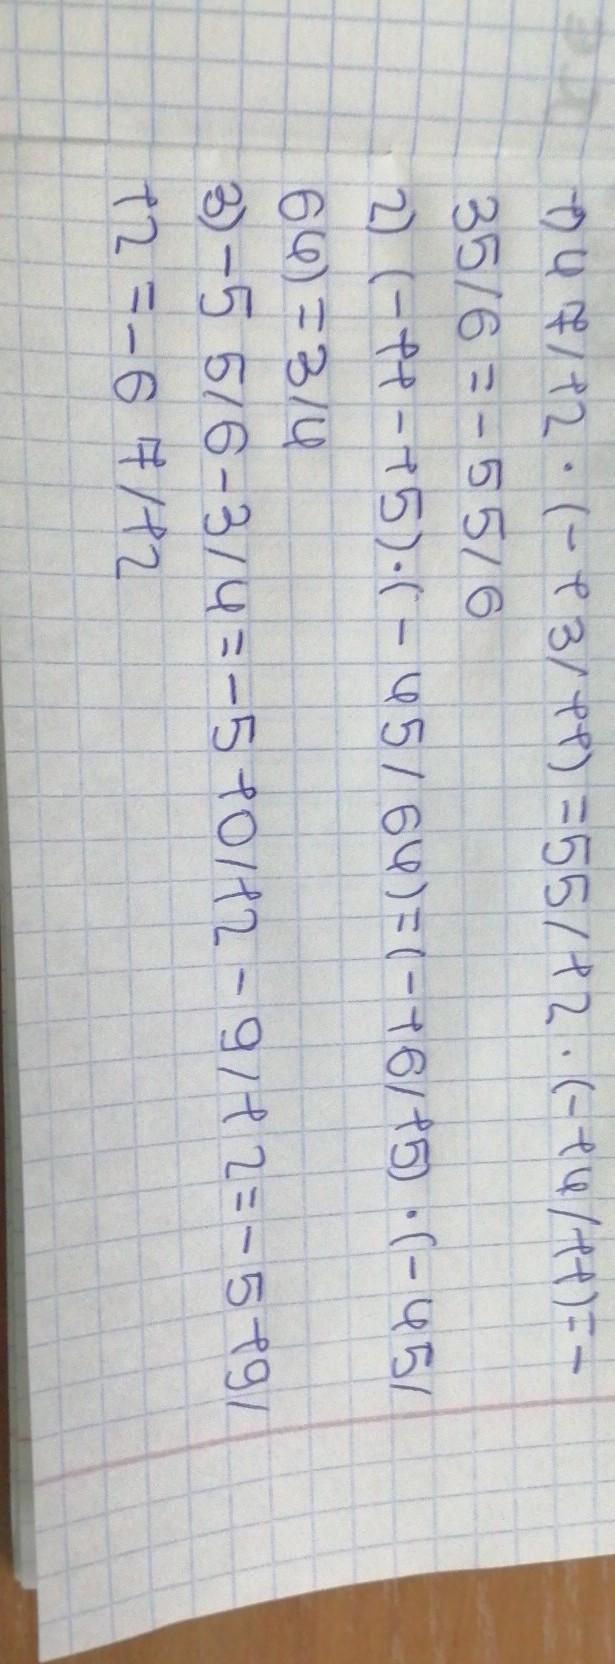 1) 4 7/12 · (-1 3/11) = 55/12 · (-14/11) = -
35/6 = -5 5/6
2) (-1 1-15) · (-45/64) = (-16/15) · (-45/
64) = 3/4
3) -5 5/6 - 3/4 = -5 10/12 - 9/12 = -5 19/
12 = -6 7/12